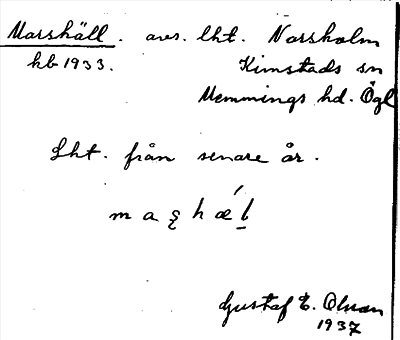 Marshäll. avs. lht. Norsholm
kb 1933. Kimstads sn
Memmings hd. Ögl
Lht. från senare år.
m a ȿ h ǽ l̲
Gustaf E. Olsson
1937